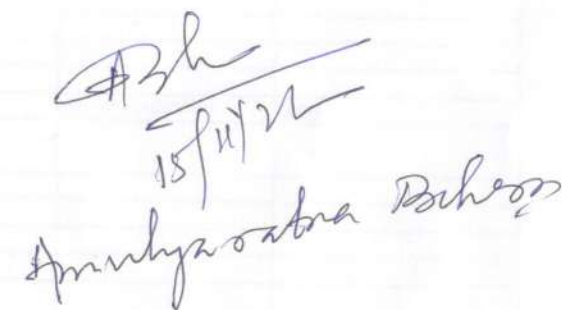 15/11/21
Amulyaratna Behera